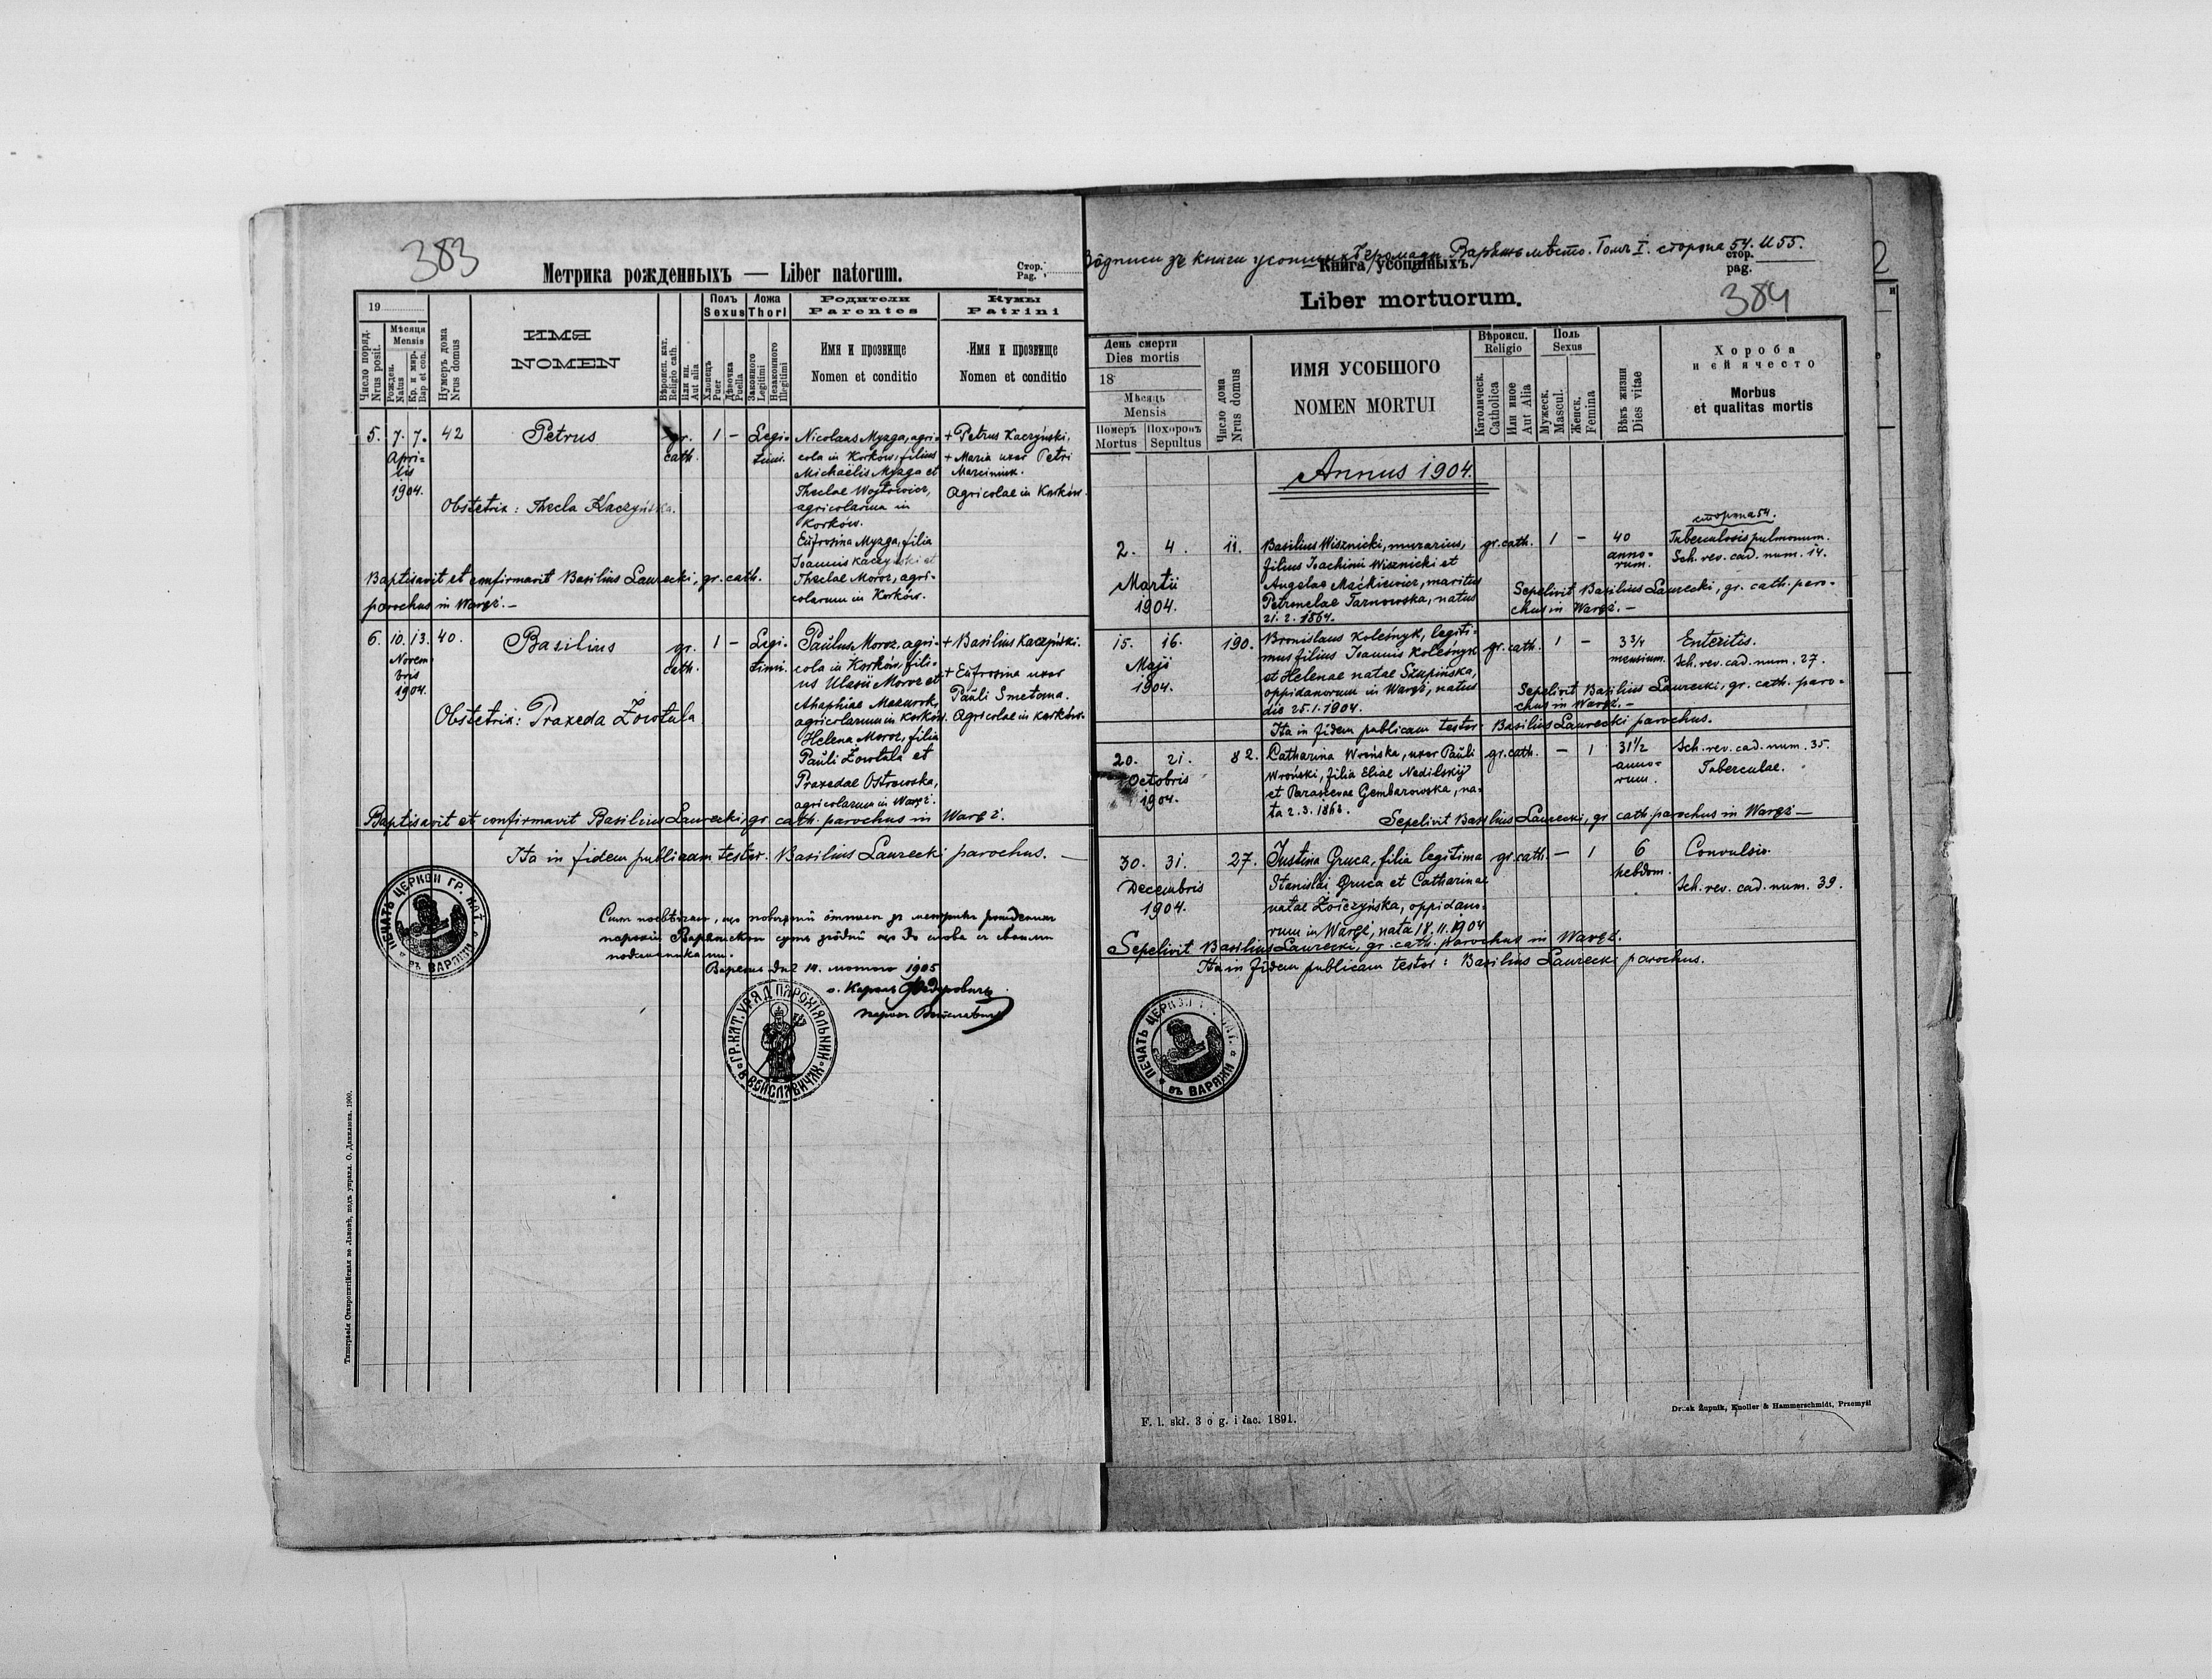 383
Метрика рожденныхъ — Liber natorum.
Стор.
Pag.
19
Число поряд.
Nrus posit.
Мѣсяця
Mensis
Рожден.
Natus
Кр. и мир.
Bap et con.
Нумеръ дома
Nrus domus
ИМЯ
NOMEN
Вѣроисп. кат.
Religio cath.
Или ин.
Aut alia
Полъ
Sexus
Хлопець
Puer
Дѣвочка
Puella
Ложа
Thori
Законного
Legitimi
Незаконного
Illegitimi
Родители
Parentes
Имя и прозвище
Nomen et conditio
Кумы
Patrini
Имя и прозвище
Nomen et conditio
5. 7. 7. 42 Petrus gr. 1 – Legi-
Apri- cath. timi.
lis
1904.
Obstetrix: Thecla Kaczyńska.
Nicolaus Myzga, agri-
cola in Korków, filius
Michaëlis Myzga et
Theclae Wojtowicz,
agricolarum in
Korków.
Eufrosina Myzga, filia
Ioannis Kaczyński et
Theclae Moroz, agri-
colarum in Korków.
+ Petrus Kaczyński,
+ Maria uxor Petri
Marciniuk.
Agricolae in Korków.
Baptisavit et confirmavit Basilius Laurecki, gr. cath.
parochus in Waręż. –
6. 10. 13. 40. Basilius gr. 1 – Legi-
Novem- cath. timi.
bris
1904.
Obstetrix: Praxeda Żowtula
Paulus Moroz, agri-
cola in Korków, fili-
us Ulasii Moroz et
Ahaphiae Mazurok,
agricolarum in Korków.
Helena Moroz, filia
Pauli Żowtula et
Praxedae Ostrowska,
agricolarum in Waręż.
+ Basilius Kaczyński.
+ Eufrosina uxor
Pauli Smetana.
Agricolae in Korków.
Baptisavit et confirmavit Basilius Laurecki, gr. cath. parochus in Waręż.
Ita in fidem publicam testor. Basilius Laurecki parochus. —
ПЕЧАТЬ ЦЕРКВИ ГР. КАТ. ВЪ ВАРЯЖИ
1905
ГР. КАТ. УРЯД ПАРОХІЯЛЬНИЙ В ВОИСЛАВИЧАХ
Типографія Ставропигійская во Львовѣ, подъ управл. О. Данилюка. 1900.
Вôдписи зъ книги усопшихъ Громады Варяжъ мѣсто. Томъ I. сторона 54. и 55.
Книга усопшыхъ.
стор.
pag.
Liber mortuorum.
384
День смерти
Dies mortis
18
Мѣсяць
Mensis
Померъ
Mortus
Похоронъ
Sepultus
Число дома
Nrus domus
ИМЯ УСОБШОГО
NOMEN MORTUI
Вѣроисп.
Religio
Католическ.
Catholica
Или иное
Aut Alia
Поль
Sexus
Мужеск.
Mascul.
Женск.
Femina
Вѣкъ жизни
Dies vitae
Хороба
и ей ячесто
Morbus
et qualitas mortis
Annus 1904.
сторона 54.
2. 4. 11.
Martii
1904.
Basilius Wisznicki, murarius,
filius Ioachimi Wisznicki et
Angelae Maćkiewicz, maritus
Petronelae Tarnowska, natus
21. 2. 1864.
gr. cath. 1 – 40
anno-
rum.
Tuberculosis pulmonum.
Sch. rev. cad. num. 14.
Sepelivit Basilius Laurecki, gr. cath. paro-
chus in Waręż. –
15. 16. 190.
Maji
1904.
Bronislaus Koleśnyk, legiti-
mus filius Ioannis Koleśnyk
et Helenae natae Szupińska,
oppidanorum in Waręż, natus
die 25. 1. 1904.
gr. cath. 1 – 3 3/4
mensium.
Enteritis.
Sch. rev. cad. num. 27.
Sepelivit Basilius Laurecki, gr. cath. paro-
chus in Waręż. –
Ita in fidem publicam testor. Basilius Laurecki parochus.
20. 21. 82.
Octobris
1904.
Catharina Wrońska, uxor Pauli
Wroński, filia Eliae Nedilskij
et Parascevae Gembarowska, na-
ta 2. 3. 1863.
gr. cath. – 1 31 1/2
anno-
rum.
Sch. rev. cad. num. 35.
Tuberculae.
Sepelivit Basilius Laurecki, gr. cath. parochus in Waręż —
30. 31. 27.
Decembris
1904.
Justina Gruca, filia legitima
Stanislai Gruca et Catharinae
natae Żoiczyńska, oppidano-
rum in Waręż, nata 18. 11. 1904
gr. cath. – 1 6
hebdom.
Convulsio.
Sch. rev. cad. num. 39.
Sepelivit Basilius Laurecki, gr. cath. parochus in Waręż.
Ita in fidem publicam testor: Basilius Laurecki parochus.
ПЕЧАТЬ ЦЕРКВИ ГР. КАТ. ВЪ ВАРЯЖИ
F. l. skł. 3 o g. i łac. 1891.
Druk Żupnik, Knoller & Hammerschmidt, Przemyśl